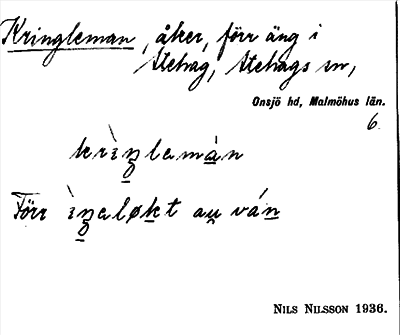 Kringleman, åker, förr äng i
Stehag, Stehags sn,
Onsjö hd, Malmöhus län.
6.
krìŋlamàn
Förr ìŋaløkt au ván
NILS NILSSON 1936.